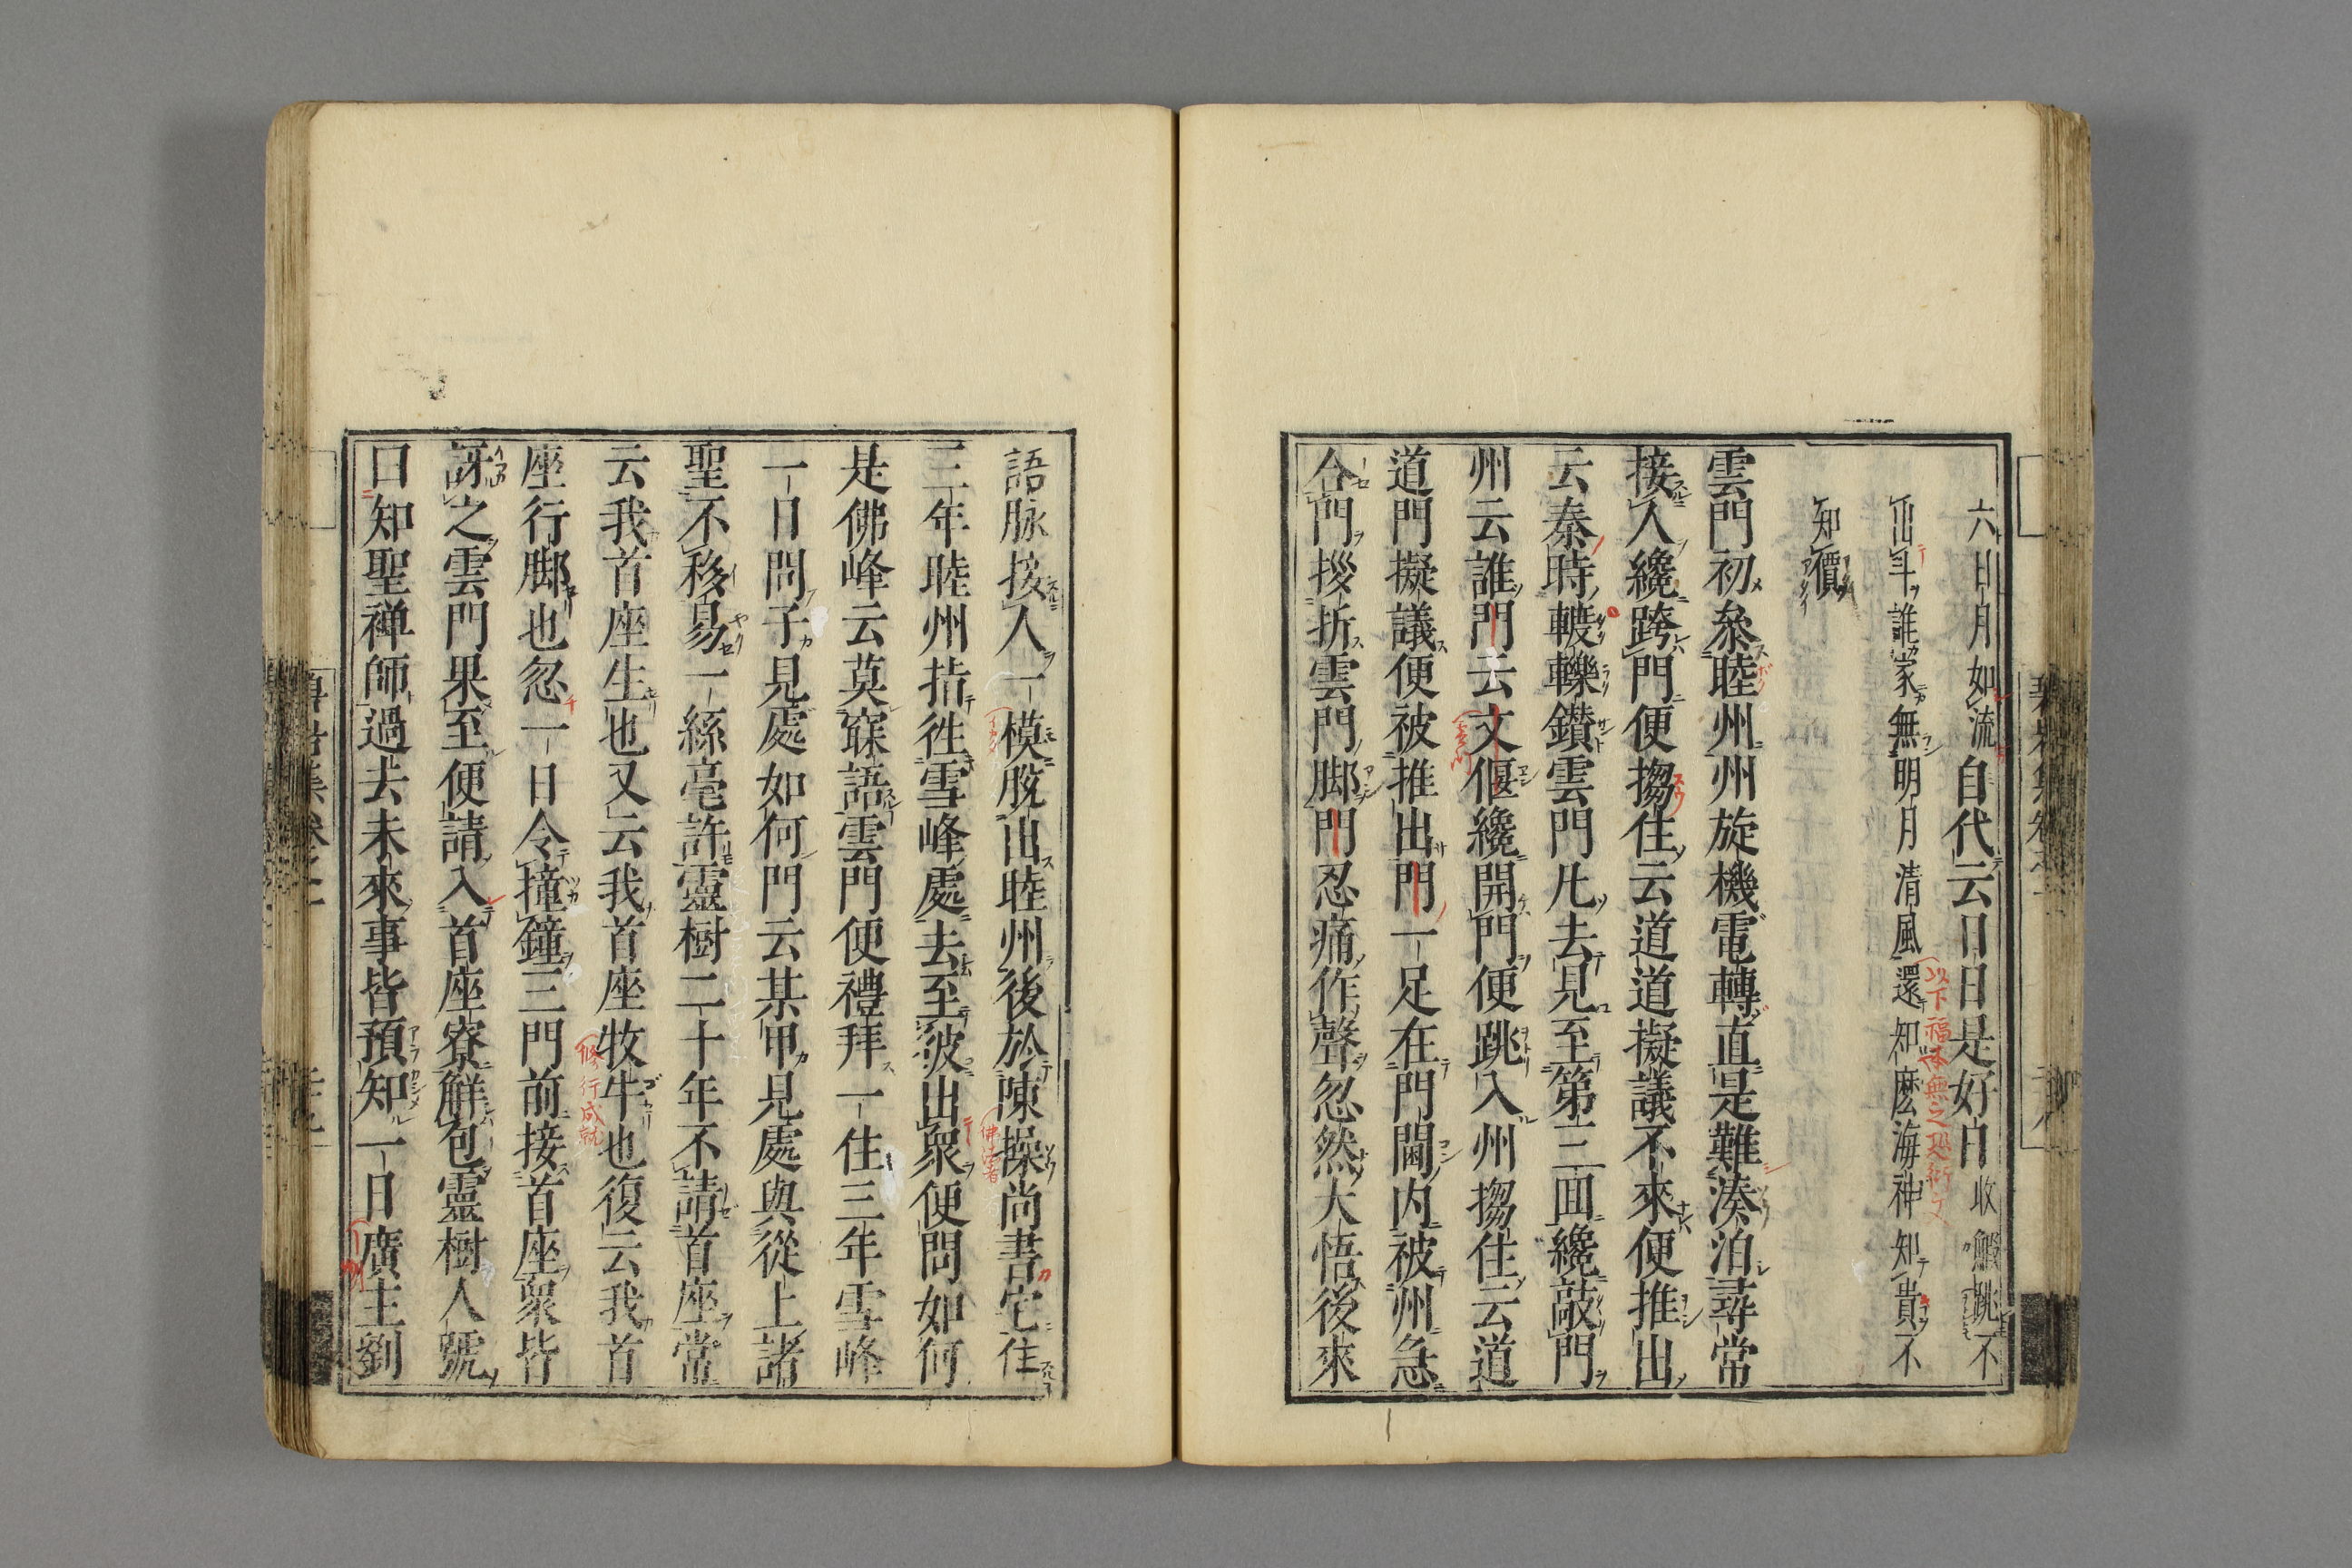 六日月如流自代云日日是好日收鰕跳不
出斗誰家無明月清風還知麽海神知貴不
以下福本無之恐衍文
知價
雲門初參睦州州旋機電轉直是難湊泊尋常
接人纔跨門便搊住云道道擬議不來便推出
云秦時𨍏轢鑽雲門凡去見至第三回纔敲門
州云誰門云文偃纔開門便跳入州搊住云道
道門擬議便被推出門一足在門閫内被州急
合門拶折雲門脚門忍痛作聲忽然大悟後來
語脉接人一模脫出睦州後於陳操尚書宅住
三年睦州指往雪峰處去至彼出衆便問如何
是佛峰云莫寐語雲門便禮拜一住三年雪峰
一日問子見處如何門云某甲見處與從上諸
聖不移易一絲毫許靈樹二十年不請首座常
云我首座生也又云我首座牧牛也復云我首
修行成就
座行脚也忽一日令撞鐘三門前接首座衆皆
訝之雲門果至便請入首座寮解包靈樹人號
曰知聖禅師過去未來事皆預知一日廣主劉